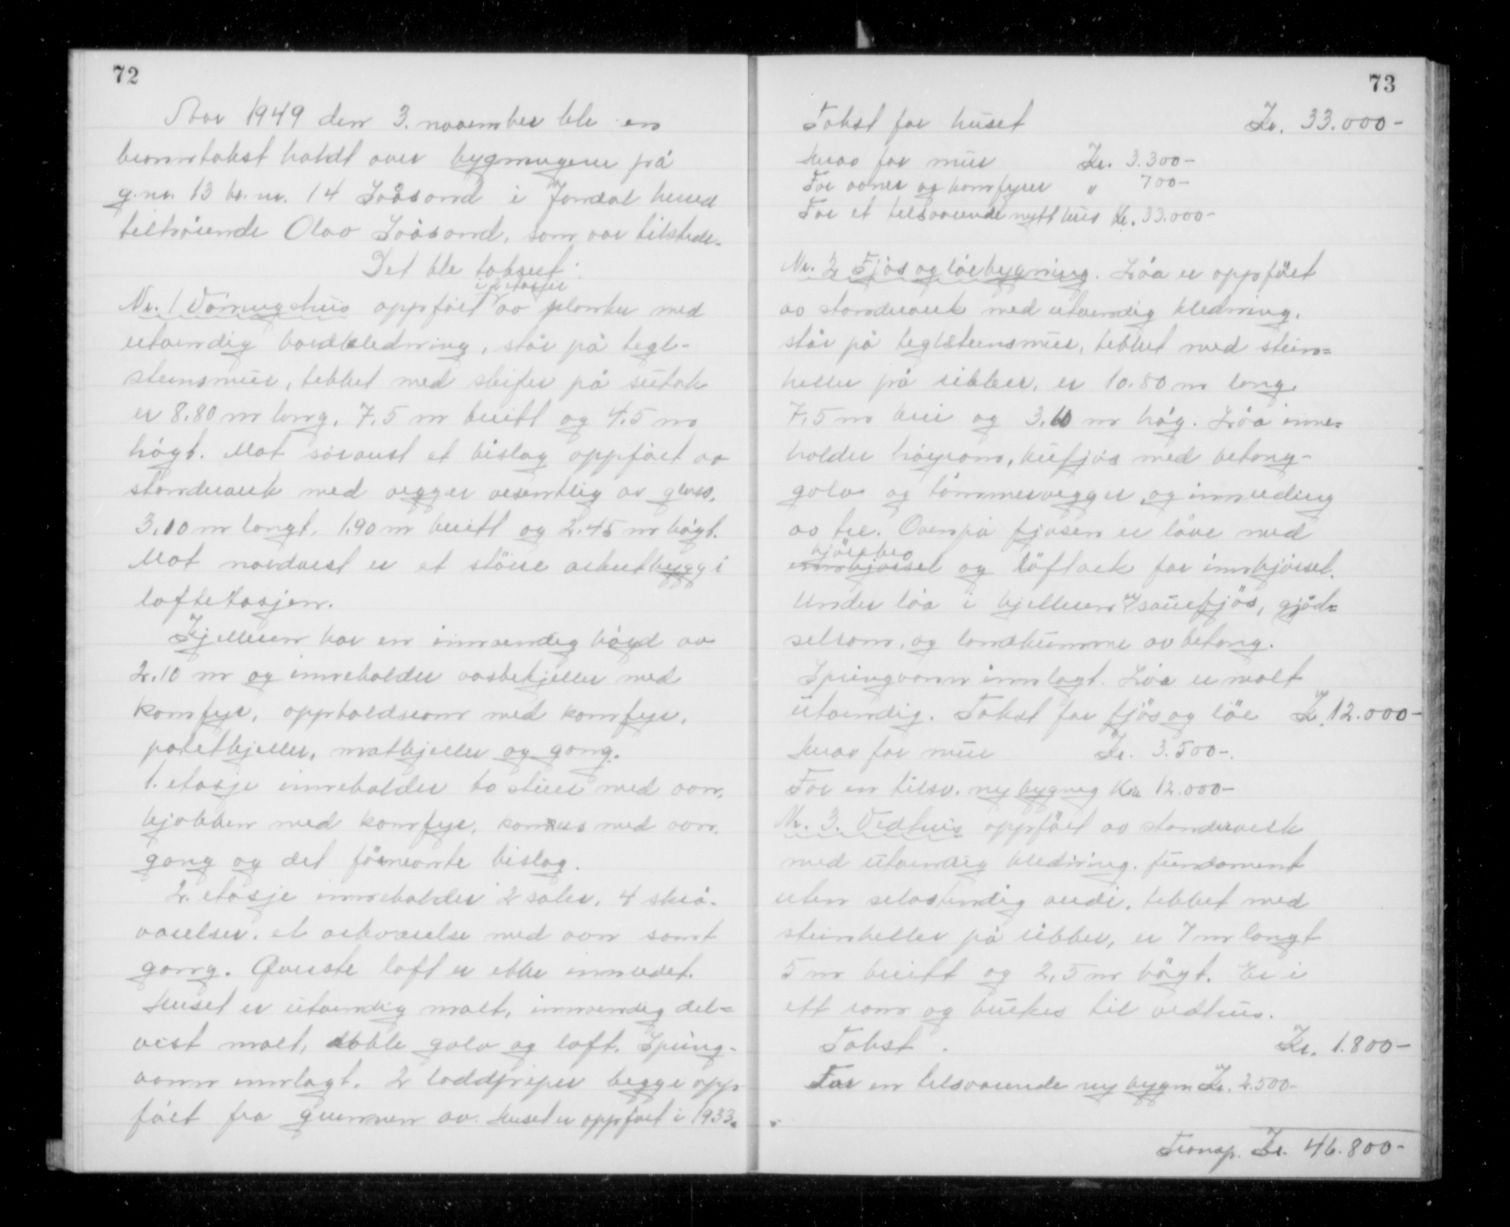 72
Aar 1949 den 3. november ble en
branntakst holdt over bygningene på
g.nr. 13 br.nr. 14 Solsand i Jondal herred
tilhörende Olav Solsand, som var tilstede.
Det ble taksert:
i 2 etasjer
Nr. 1 Våningshus oppfört av planker med
utvendig bordkledning, står på tegl-
steinsmur, tekket med skifer på sutak
er 8.80 m lang, 7,5 m breitt og 4,5 m
högt. Mot söraust et bislag oppfört av
standverk med vegger vesentlig av glass,
3,10 m langt, 1.90 m breitt og 2.45 m högt.
Mot nordvest er et större arkutbygg i
loftetasjen.
Kjelleren har en innvendig höyd av
2.10 m og inneholder vaskekjeller med
komfyr, oppholdsrom med komfyr,
potetkjeller, matkjeller og gang.
1. etasje inneholder to stuer med ovn,
kjökken med komfyr, kammers med ovn,
gang og det förnevnte bislag.
2. etasje inneholder 2 saler, 4 skrå-
værelser, et arkværelse med ovn samt
gang. Överste loft er ikke innredet.
Huset er utvendig malt, innvendig del=
vist malt, doble golv og loft. Spring-
vann innlagt. 2 loddpiper begge opp
fört fra grunnen av. Huset er oppfört i 1933.
73
Takst for huset Kr. 33.000-
Herav for mur Kr. 3.300-
For ovner og komfyrer " 700-
For et tilsvarende nytt hus Kr. 33.000-
Nr. 2 Fjös og löebygning. Löa er oppfört
av standverk med utvendig kledning,
står på teglsteinsmur, tekket med stein=
heller på ribber, er 10.80 m lang
7,5 m brei og 3,10 m håg. Löa inne=
holder höyrom, kufjös med betong-
golv og tömmervegger og innreding
av tre. Ovenpå fjösen er låve med
kjörebro
innkjörsel og löftark for innkjörsel.
Under löa i kjelleren er sauefjös, gjöd=
selrom, og landkumme av betong.
Springvann innlagt. Löa er malt
utvendig. Takst for fjös og löe Kr. 12.000-
Herav for mur Kr. 3.500-.
For en tilsv. ny bygning Kr. 12.000-
Nr. 3. Vedhus oppfört av standverk
med utvendig kledning. Fundament
uten selvstendig verdi, tekket med
steinheller på ribber, er 7 m langt
5 m breitt og 2,5 m högt. Er i
ett rom og brukes til vedhus.
Takst. Kr. 1.800-
For en tilsvarende ny bygn Kr. 2.500-
Transp. Kr. 46.800-